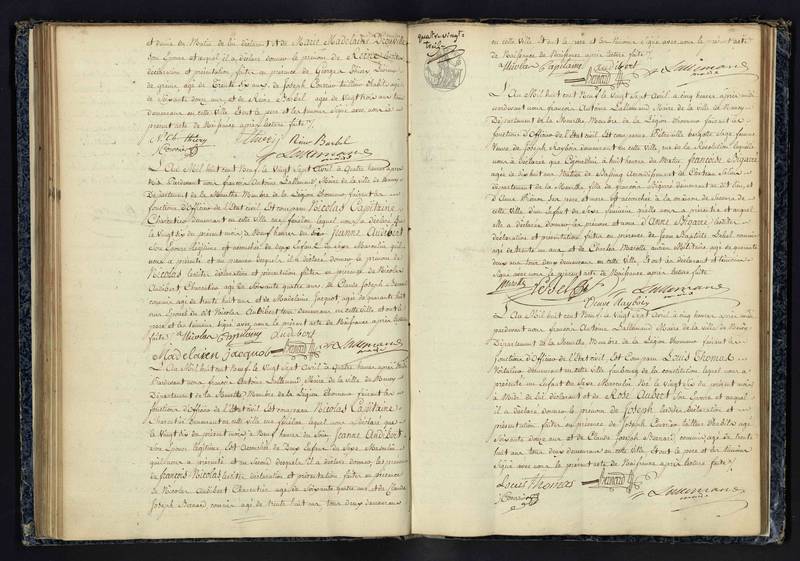 et demie du Matin de lui déclarant et de Marie Madelaine
son Epouse et auquel il a déclaré donner le prénom de Reine
déclaration et présentation faites en présence de George Thiery
de graine agé de Trente six ans, de Joseph tailleur d'habits agé
de soixante douze ans et de Reine Barbel agée de vingt six ans tous
demeurans en cette ville et ont le pere et les temoins signé avec nous le
présent acte de Naissance après lecture faite
N. Ch. thiery Thiery Reine Barbel
Lallemand
maire
L'An Mil huit cent Neuf le Vingt Sept Avril a Quatre heures après
Midi Pardevant nous françois Antoine Lallemand Maire de la Ville de Nancy
Département de la Meurthe Membre de la Légion d'honneur faisant les
fonctions d'Officier de l'Etat civil Est comparu Nicolas Capitaine
Charentier demeurant en cette Ville lequel nous a déclaré que
le Vingt six du présent mois à Neuf heures du Soir Jeanne Audibert
Son Epouse Légitime est accouchée de deux Enfans du Sexe Masculin qu'il
nous a présenté et au premier desquels il a déclaré donner le prénom de
Nicolas lesdites déclaration et présentation faites en présence de Nicolas
Audibert Charentier agé de Soixante quatre ans, de Claude Joseph Benard
commis agé de trente huit ans et de Madelaine Jacquot agée de quarante huit
ans Epouse dudit Nicolas Audibert tous demeurans en cette ville et ont le
pere et les temoins signé avec nous le présent acte de Naissance après lecture
faite
Nicolas Capitaine Audibert
Madelaien Jacquot Benard Lallemand
maire
L'An Mil huit cent Neuf le Vingt Sept Avril à Quatre heures après Midi
Pardevant nous françois Antoine Lallemand Maire de la Ville de Nancy
Département de la Meurthe Membre de la Légion d'honneur faisant les
fonctions d'Officier de l'Etat civil Est comparu Nicolas Capitaine
Charentier Demeurant en cette ville lequel nous a déclaré que
le Vingt six du présent mois à Neuf heures du Soir Jeanne Audibert
Son Epouse légitime Est accouchée de Deux Enfans du Sexe Masculin
qu'il nous a présenté et au Second desquels il a déclaré donner les prénoms
de françois Nicolas lesdites déclaration et présentation faites en présence
de Nicolas Audibert Charentier agé de Soixante quatre ans, et de Claude
Joseph Benard commis agé de trente huit ans tous deux demeurans
quatre vingt
trois
en cette Ville et ont le pere et les temoins signé avec nous le présent acte
de Naissance après lecture faite
Nicolas Capitaine Audibert
Benard Lallemand
maire
L'An Mil huit cent Neuf le Vingt Sept Avril à cinq heures après midi
pardevant nous françois Antoine Lallemand Maire de la Ville de Nancy
Département de la Meurthe Membre de la Légion d'honneur faisant les
fonctions d'Officier de l'Etat civil Est comparue Sage femme
Veuve de Joseph Haybois demeurant en cette Ville rue de la
nous a déclaré que à huit heures du Matin françoise
agée de dix huit ans Native de arrondissement de Château Salins
département de la Meurthe, fille de françois demeurant audit lieu, et
d'Anne ses pere et mere, est accouchée à la maison de Secours de
cette Ville d'un Enfant du Sexe féminin qu'elle nous a présenté et auquel
elle a déclaré donner le prénom et nom d'Anne lesdites
déclaration et présentation faites en présence de Jean Baptiste Lebel commis
agé de trente un ans et de Charles Marotte ancien Militaire agé de quarante
deux ans tous deux demeurans en cette Ville et ont la déclarante et temoins
Signé avec nous le présent acte de Naissance après lecture faite
Marotte Lebel Lallemand
maire
Veuve haybois
L'An Mil huit cent Neuf le Vingt Sept Avril à cinq heures après midi
pardevant nous françois Antoine Lallemand Maire de la Ville de Nancy
Département de la Meurthe Membre de la Légion d'honneur faisant les
fonctions d'Officier de l'Etat civil Est comparu Louis Thomas
demeurant en cette ville faubourg de la constitution lequel nous a
présenté un Enfant du Sexe Masculin Né le Vingt six du présent mois
à Midi de lui déclarant et de Rose Aubert Son Epouse et auquel
il a déclaré donner le prénom de Joseph lesdites déclaration et
présentation faites en présence de Joseph tailleur d'habits agé de
Soixante douze ans et de Claude Joseph Benard commis agé de trente
huit ans tous deux demeurans en cette ville et ont le pere et les temoins
Signé avec nous le présent acte de Naissance après lecture faite
Louis Thomas Benard Lallemand
maire